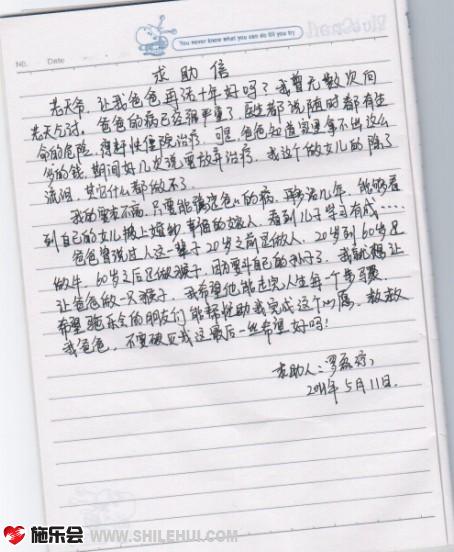 You never know what you can do till you try
NO.
Date
求助信
老天爷，让我爸爸再活十年好吗？我曾无数次问
老天爷，爸爸的病已经很严重了，医生都说随时都有生
命的危险，得靠住院治疗，可是，爸爸知道家里拿不出这么
多的钱，期间好几次说要放弃治疗，我这个做女儿的除了
流泪，其它什么都做不了。
我的要求不高，只要能让爸爸的病，再多活几年，能够看
到自己的女儿披上婚纱，幸福的嫁人，看到儿子学习有成……
爸爸曾说过人这一辈子20岁之前是做人，20岁到60岁是
做牛，60岁之后是做猴子，因为要斗自己的孙子了。我就想让
让爸爸做一只猴子，我希望他能走完人生每一个步骤，
希望施乐会的朋友们能帮忙助我完成这个心愿，救救
我爸爸，不要破灭我这最后一丝希望好吗！
求助人：罗
2011年5月11日.
施乐会
WWW.SHILEHUI.COM